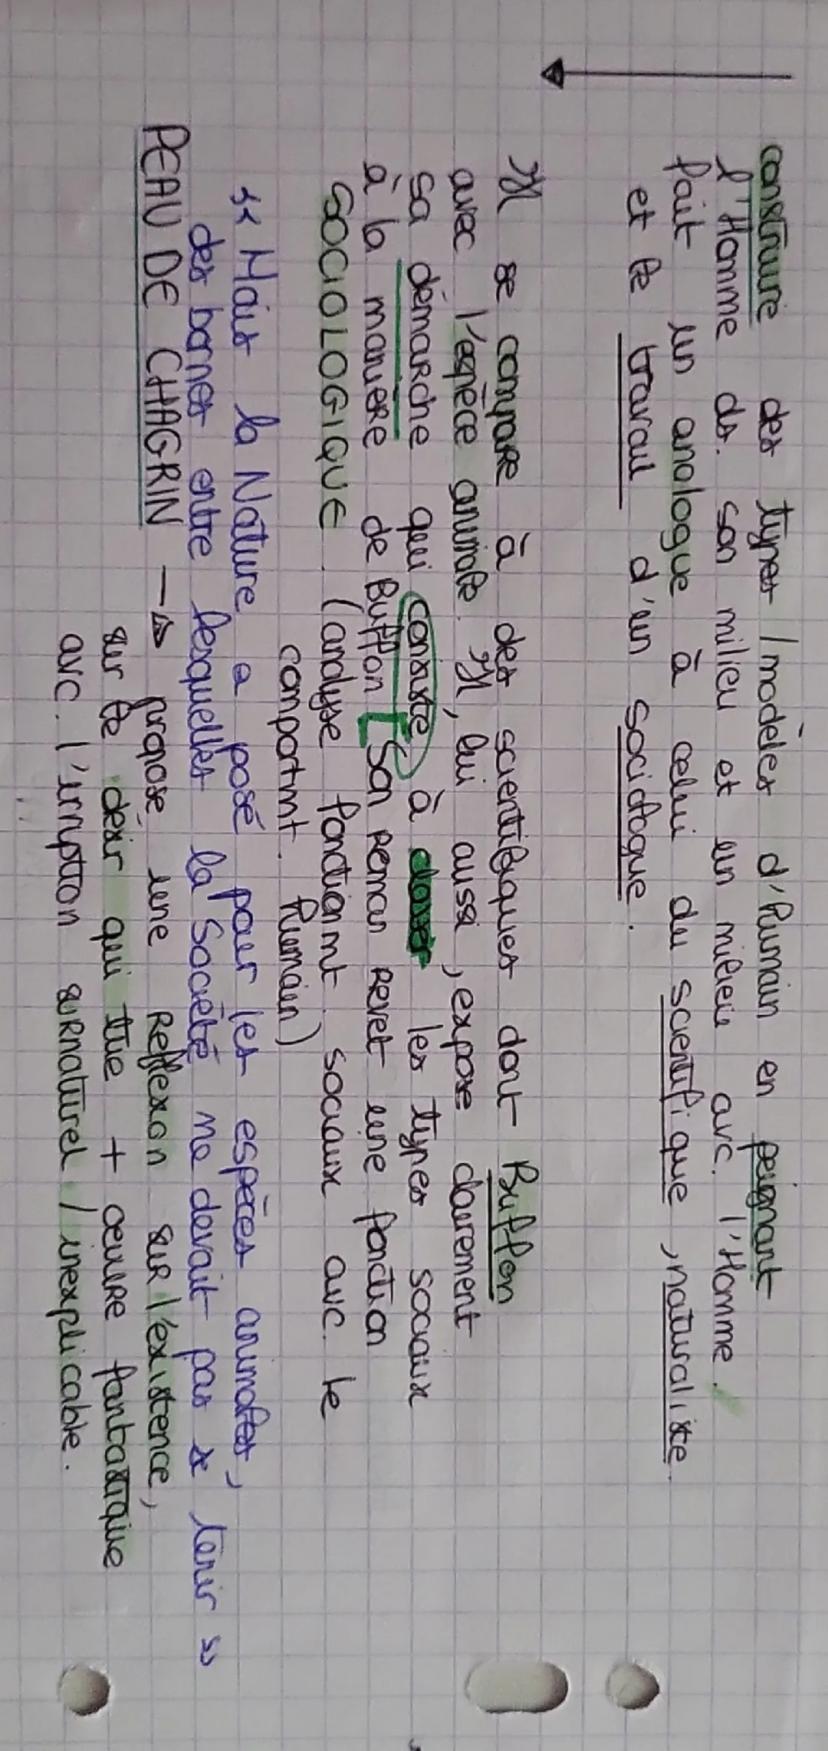 construire des types / modèles d'humain en peignant
l'Homme ds. son milieu et un milieu avc. l'Homme.
fait un analogue à celui du scientifique, naturaliste
et le travail d'un sociologue.
Il se compare à des scientifiques dont Buffon
avec l'espèce animale. Il, lui aussi, expose clairement
sa démarche qui consiste à classer les types sociaux
à la manière de Buffon [Son roman revet une fonction
SOCIOLOGIQUE (analyse fonctionmt sociaux avc. le
comportmt. humain)
« Mais la Nature a posé, pour les espèces animales,
des bornes entre lesquelles la Société ne devait pas se tenir »
PEAU DE CHAGRIN → propose une Reflexion sur l'existence,
sur le désir qui tue + œuvre fantastique
avc. l'irruption surnaturel / inexplicable.